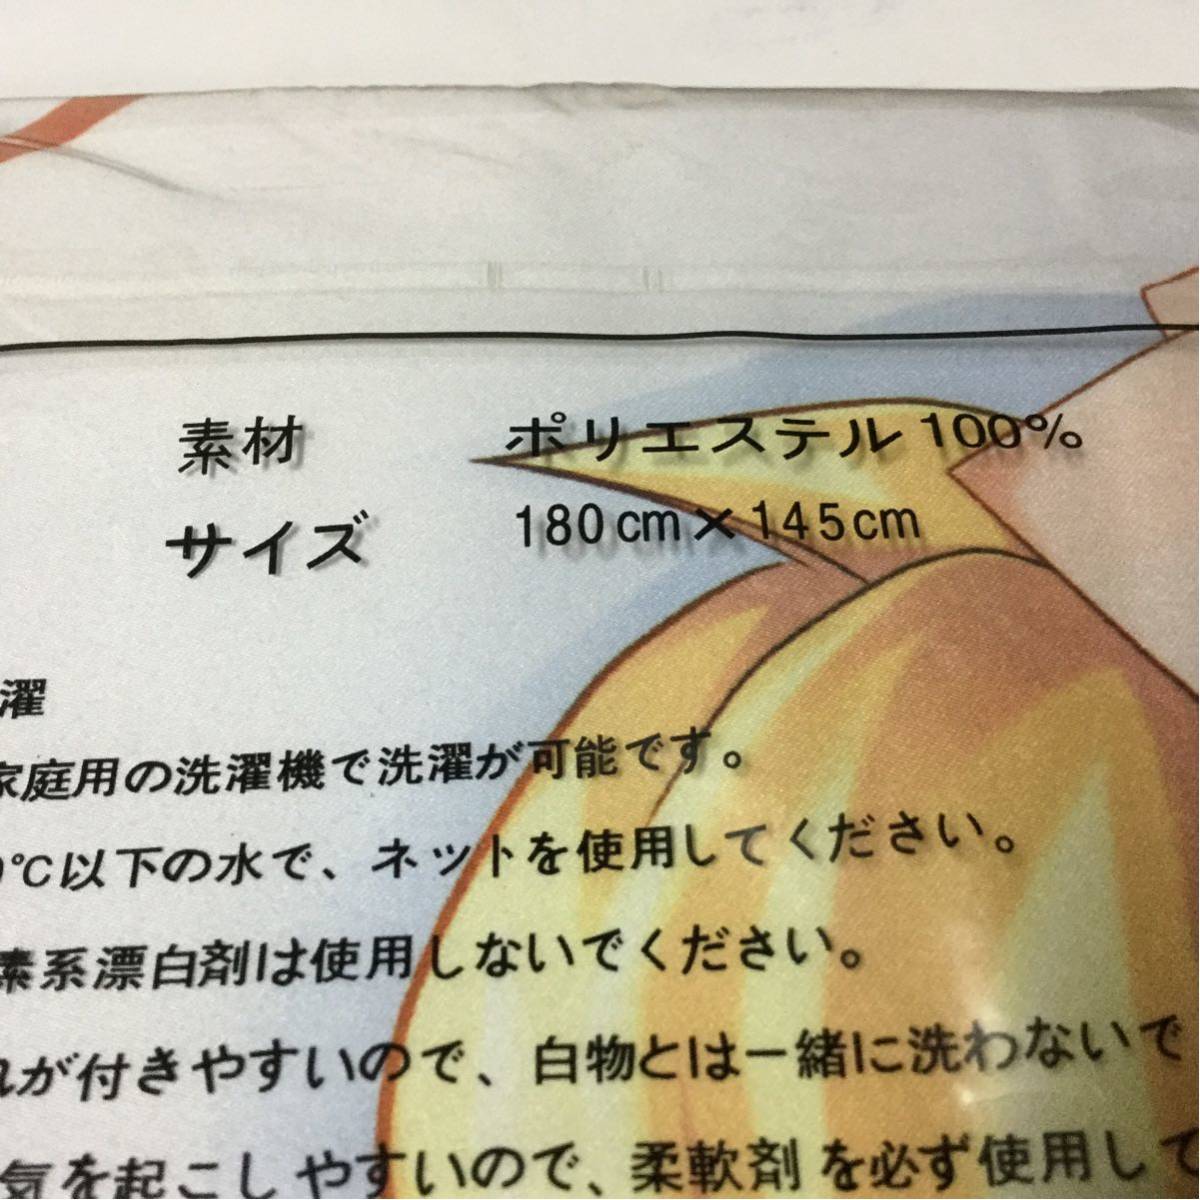 素材 ポリエステル 100%
サイズ 180cm×145cm
濯
家庭用の洗濯機で洗濯が可能です。
0℃以下の水で、ネットを使用してください。
素系漂白剤は使用しないでください。
れが付きやすいので、白物とは一緒に洗わないで
気を起こしやすいので、柔軟剤を必ず使用して